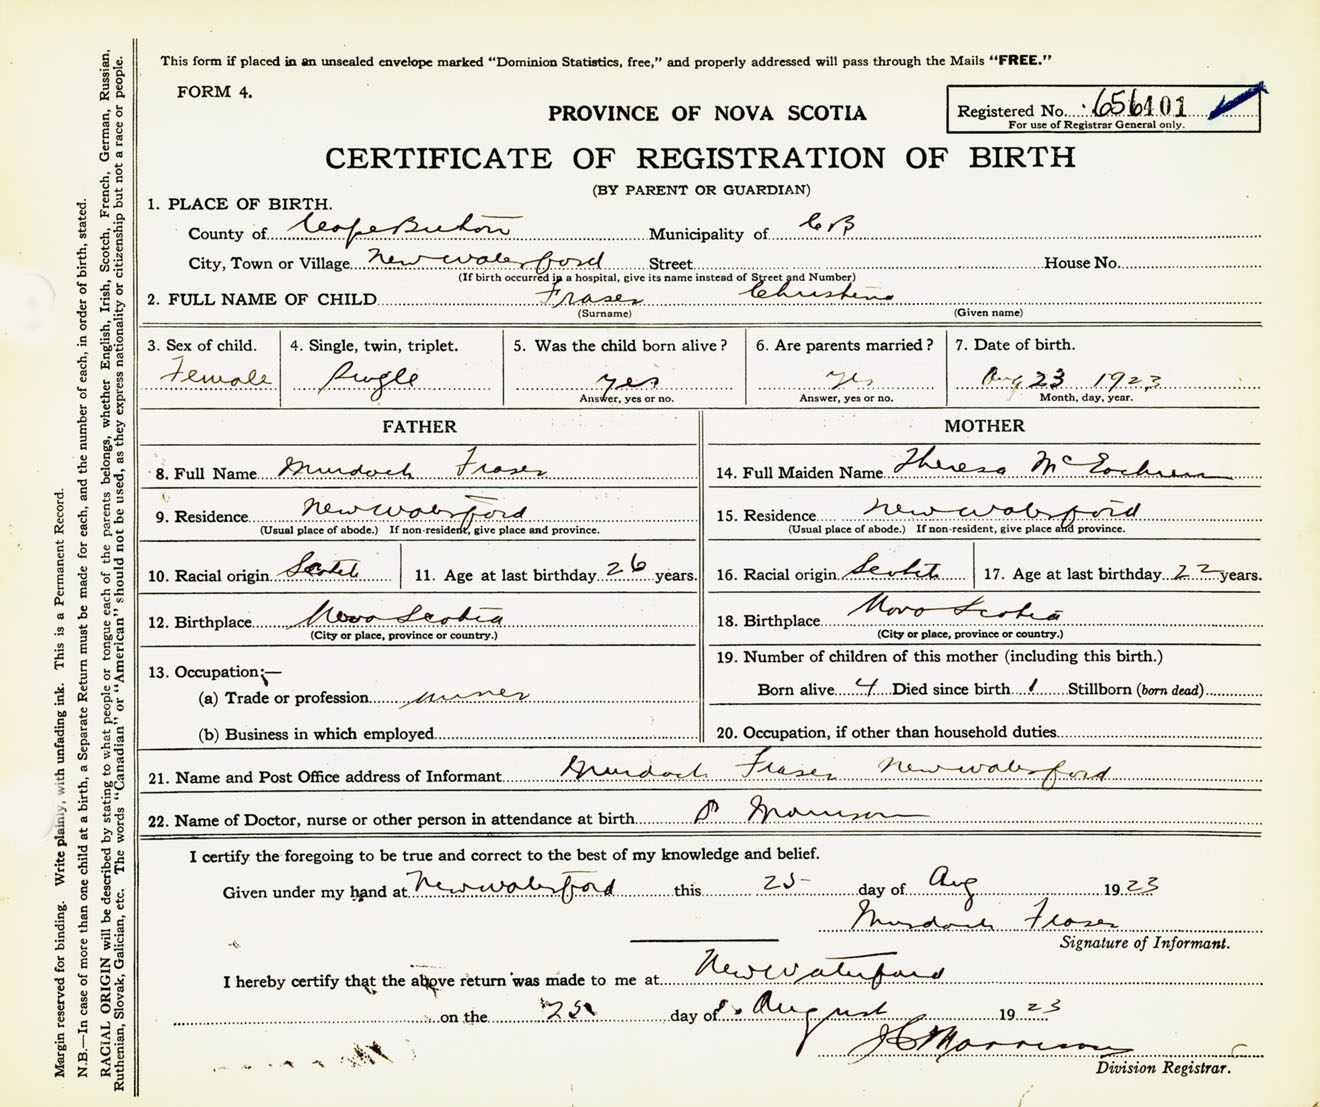 This form if placed in an unsealed envelope marked "Dominion Statistics, free," and properly addressed will pass through the Mails "FREE."
FORM 4.
PROVINCE OF NOVA SCOTIA
Registered No. 656101
For use of Registrar General only.
CERTIFICATE OF REGISTRATION OF BIRTH
(BY PARENT OR GUARDIAN)
1. PLACE OF BIRTH.
County of Cape Breton Municipality of C B
City, Town or Village New Waterford Street House No.
(If birth occurred in a hospital, give its name instead of Street and Number)
2. FULL NAME OF CHILD Fraser Christina
(Surname) (Given name)
3. Sex of child. 4. Single, twin, triplet. 5. Was the child born alive? 6. Are parents married? 7. Date of birth.
Female Single yes yes Aug 23 1923
Answer, yes or no. Answer, yes or no. Month, day, year.
FATHER MOTHER
8. Full Name Murdoch Fraser 14. Full Maiden Name Theresa Mc
9. Residence New Waterford 15. Residence New Waterford
(Usual place of abode.) If non-resident, give place and province. (Usual place of abode.) If non-resident, give place and province.
10. Racial origin Scotch 11. Age at last birthday 26 years. 16. Racial origin Scotch 17. Age at last birthday 22 years.
12. Birthplace Nova Scotia 18. Birthplace Nova Scotia
(City or place, province or country.) (City or place, province or country.)
13. Occupation:— 19. Number of children of this mother (including this birth.)
(a) Trade or profession miner Born alive 4 Died since birth 1 Stillborn (born dead)
(b) Business in which employed 20. Occupation, if other than household duties
21. Name and Post Office address of Informant Murdoch Fraser New Waterford
22. Name of Doctor, nurse or other person in attendance at birth Morrison
I certify the foregoing to be true and correct to the best of my knowledge and belief.
Given under my hand at New Waterford this 25 day of Aug 1923
Murdoch Fraser
Signature of Informant.
I hereby certify that the above return was made to me at New Waterford
on the 25 day of August 1923
J C Morrison
Division Registrar.
Margin reserved for binding. Write plainly, with unfading ink. This is a Permanent Record.
N.B.—In case of more than one child at a birth, a Separate Return must be made for each, and the number of each, in order of birth, stated.
RACIAL ORIGIN will be described by stating to what people or tongue each of the parents belongs, whether English, Irish, Scotch, French, German, Russian,
Ruthenian, Slovak, Galician, etc. The words "Canadian" or "American" should not be used, as they express nationality or citizenship but not a race or people.